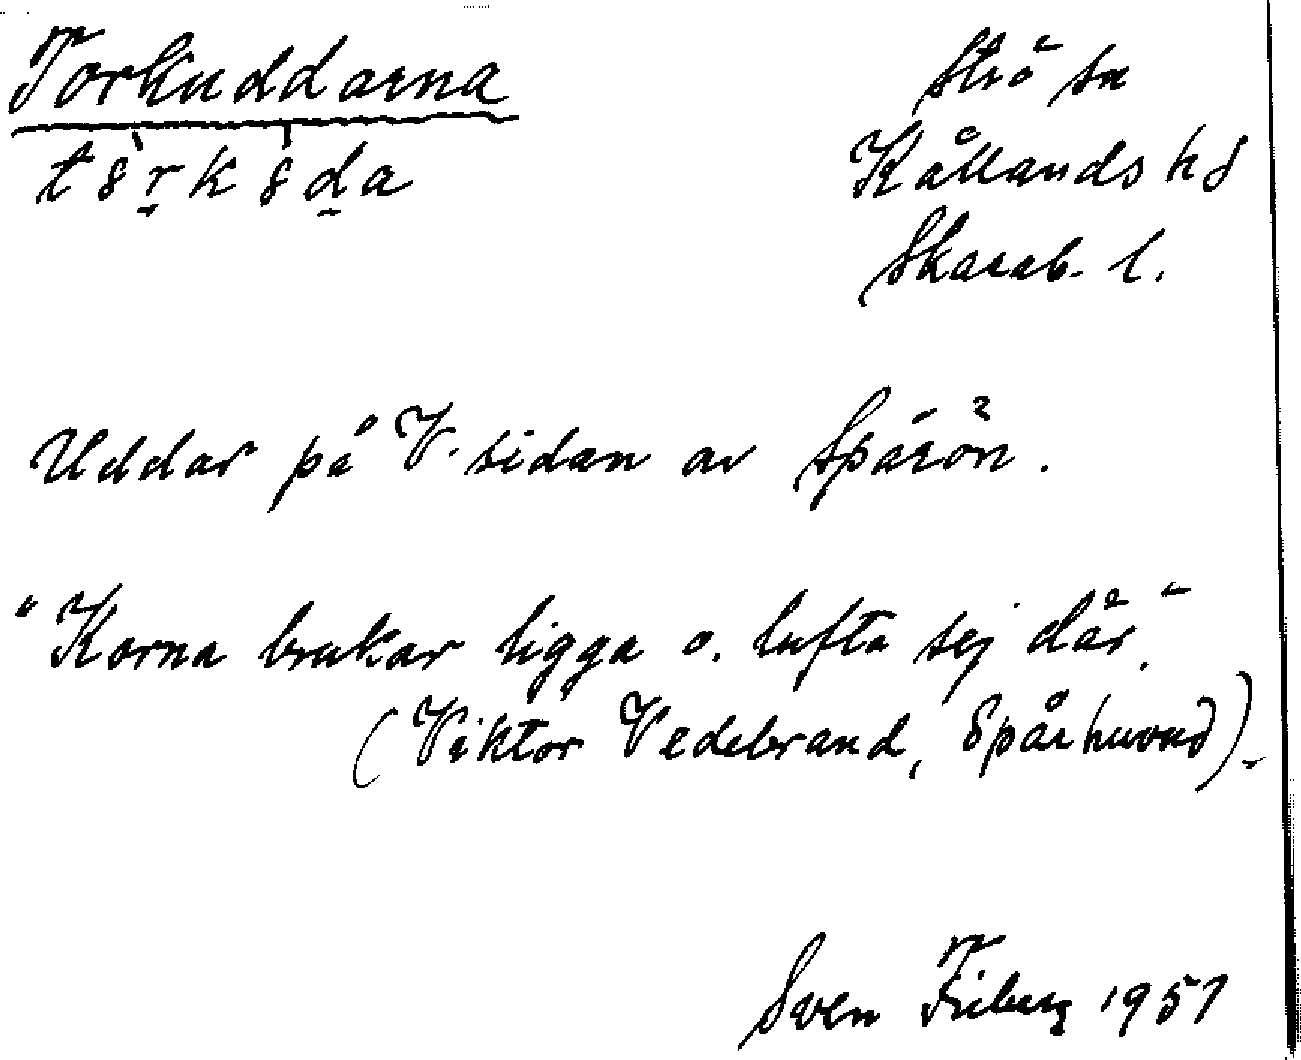 Torkuddarna
Strö sn
Kållands hd
Skarab. l.
Uddar på V. sidan av Spårön.
"Korna brukar ligga o. lufta sej där."
(Viktor Vedebrand, Spårhuvud).
Sven Friberg 1951